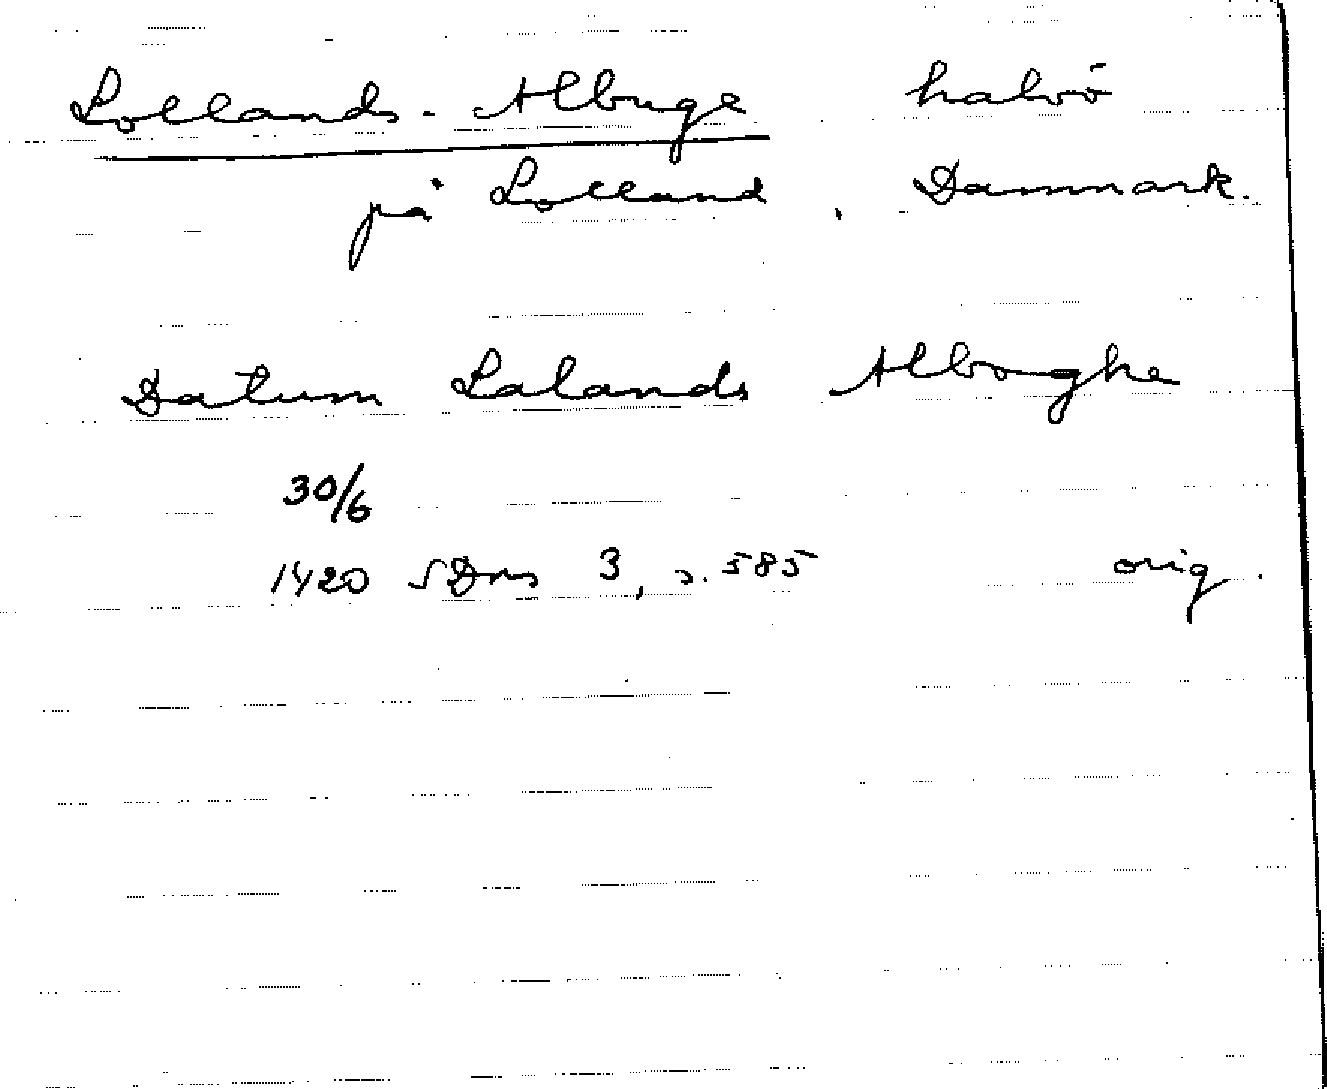 Lollands-Albuge halvö
på Lolland, Danmark.
Datum Lalands Alboghe
30/6
1420 SDns 3, s. 585 orig.